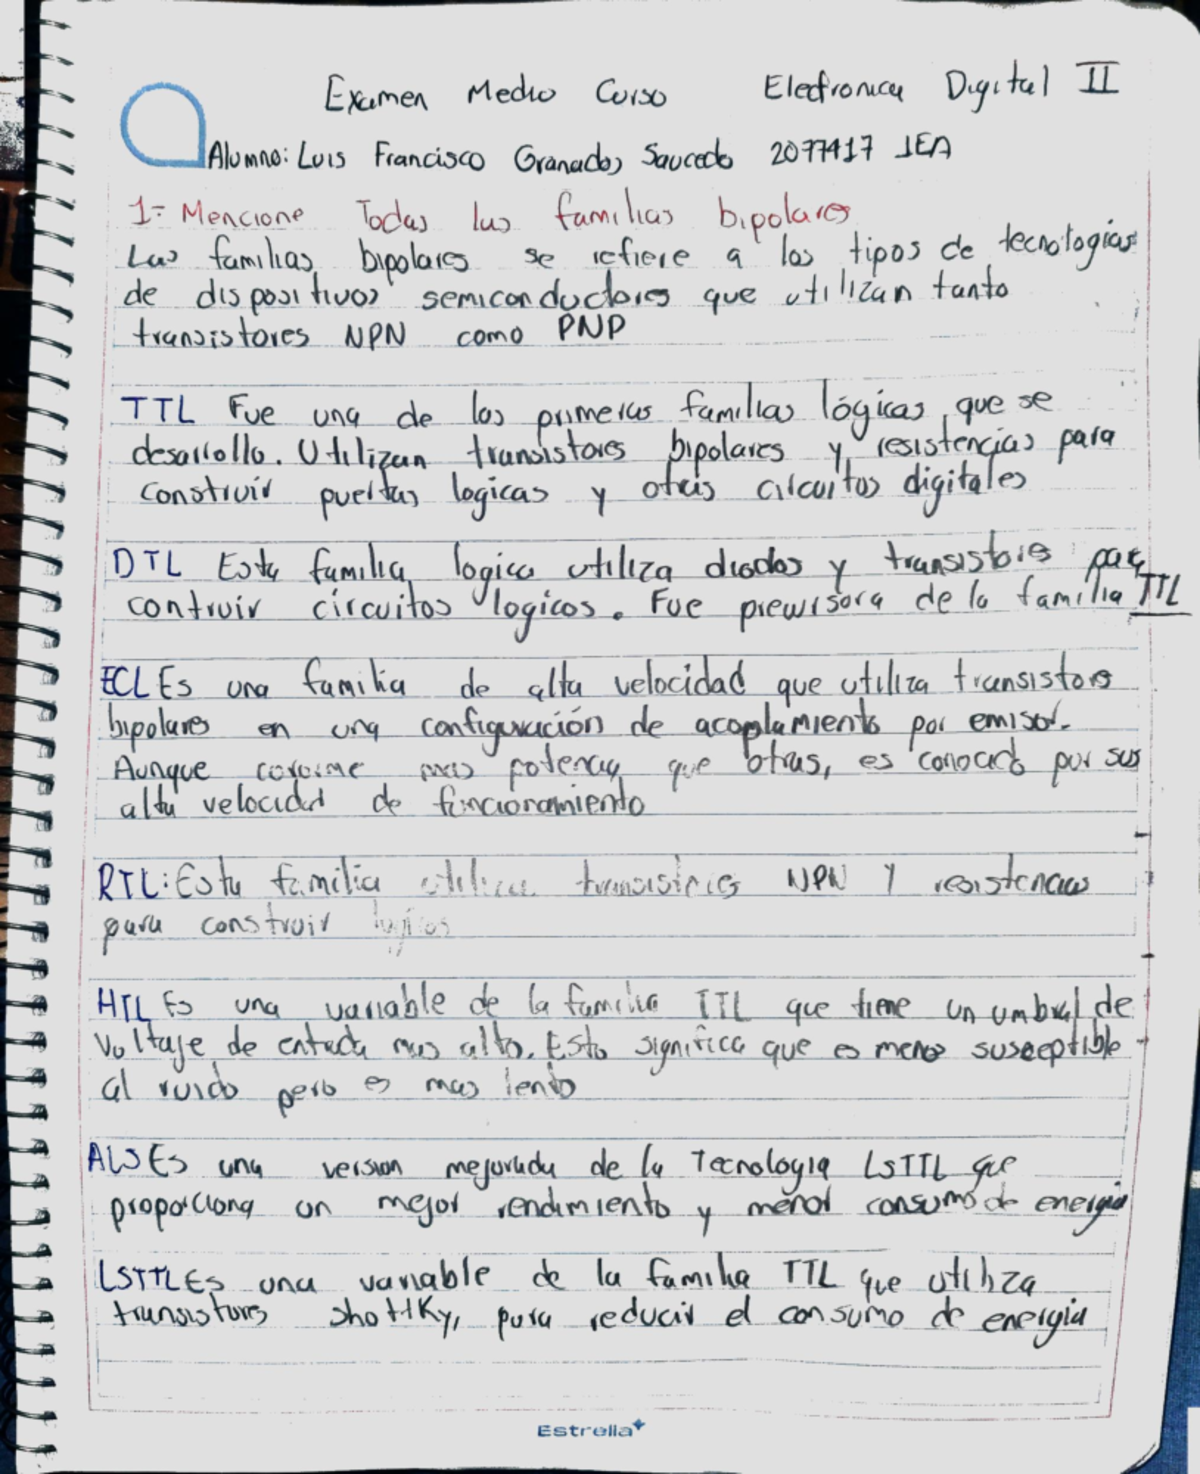 Examen Medio Curso Electronica Digital II
Alumno: Luis Francisco Granados Saucedo 2077417 IEA
1- Mencione Todas las familias bipolares
Las familias bipolares se refiere a los tipos de tecnologias
de dispositivos semiconductores que utilizan tanto
transistores NPN como PNP
TTL Fue una de las primeras familias lógicas que se
desarollo. Utilizan transistores bipolares y resistencias para
construir puertas logicas y otros circuitos digitales
DTL Esta familia logica utiliza diodos y transistores para
contruir circuitos logicos. Fue prewrsora de la familia TTL
ECL Es una familia de alta velocidad que utiliza transistors
bipolares en una configuración de acoplamiento por emisor.
Aunque consume mas potencia que otras, es conocido por sus
alta velocidad de funcionamiento
RTL: Esta familia utiliza transistores NPN Y resistencias
para construir logicos
HTL Es una variable de la familia TTL que tiene un umbral de
voltaje de entrada mas alto. Esto significa que es menos susceptible
al ruido pero es mas lento
ALS Es una version mejorada de la Tecnologia LSTTL que
proporciona un mejor rendimiento y menor consumo de energia
LSTTL Es una variable de la familia TTL que utiliza
transistores shottky, para reducir el consumo de energia
Estrella